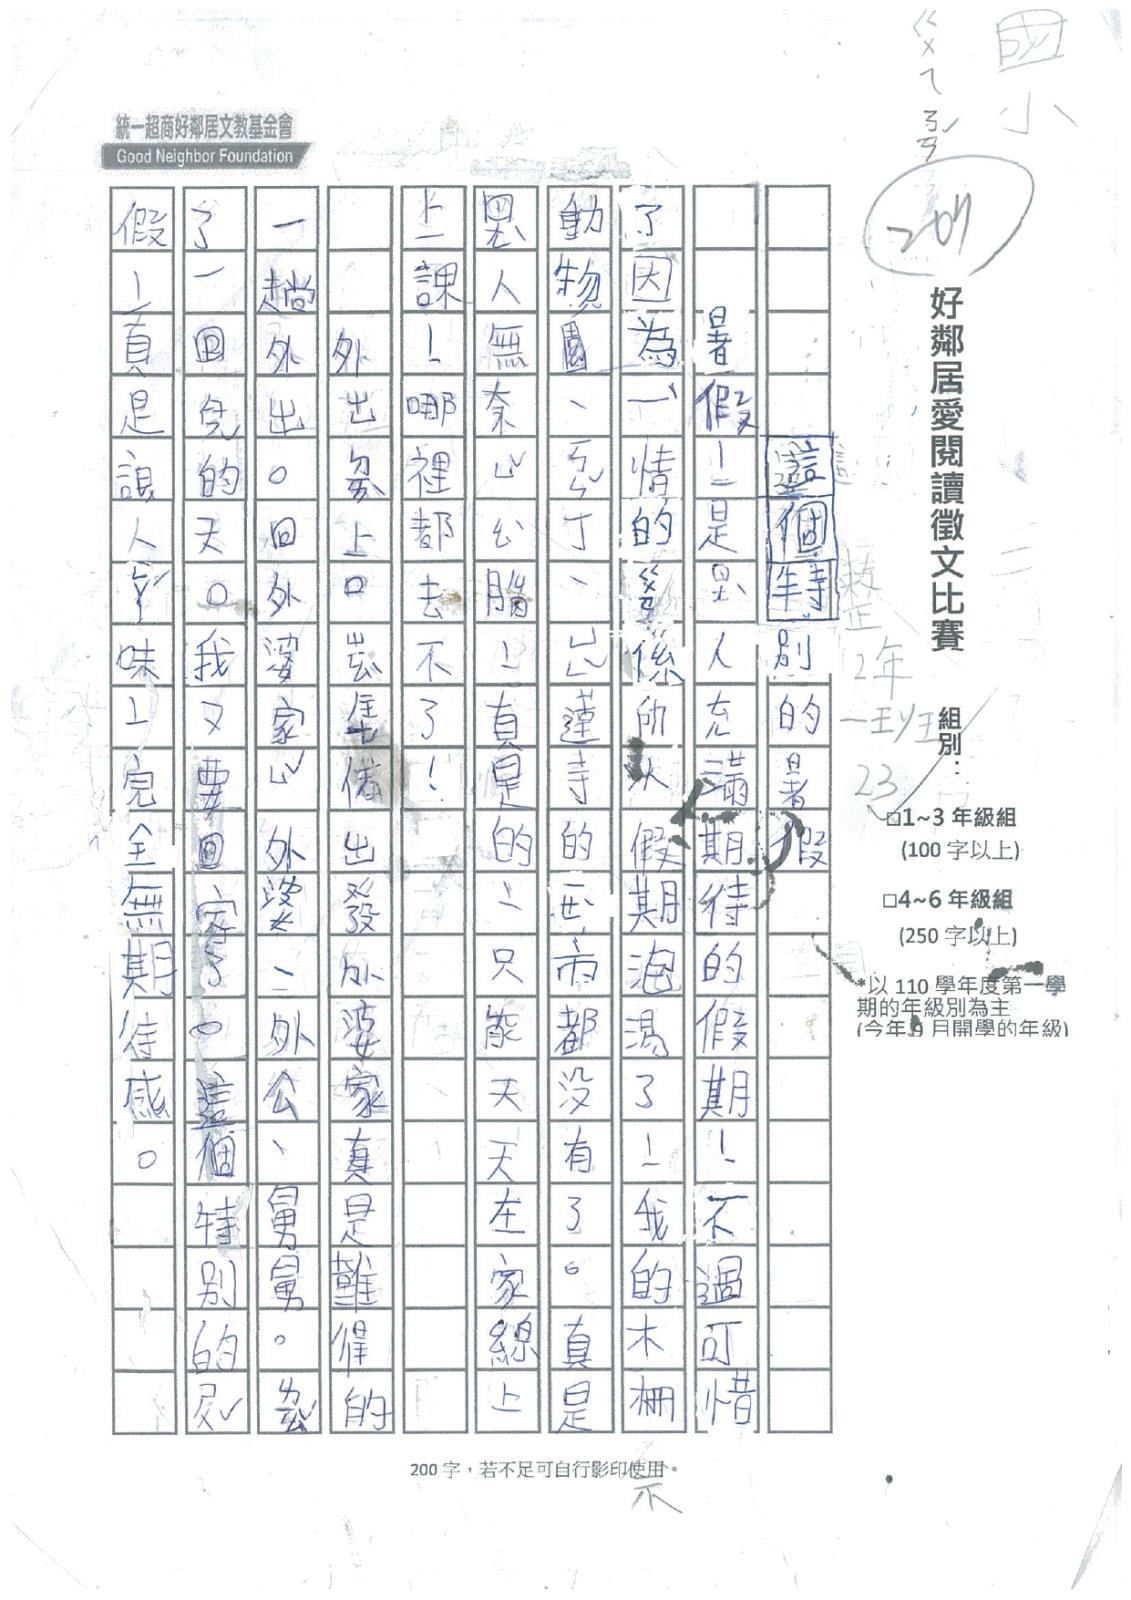 國小
ㄍㄨㄟ
209
統一超商好鄰居文教基金會
Good Neighbor Foundation
好鄰居愛閱讀徵文比賽
組別：
□1~3 年級組
(100 字以上)
□4~6 年級組
(250 字以上)
*以 110 學年度第一學
期的年級別為主
(今年 9 月開學的年級)
2年
一班
23
這個特別的暑假
暑假！是 人充滿期待的假期！不過可惜
了因為 情的 係所以假期泡湯了！我的木柵
動物園、 ㄒ、 蓮寺的 市都没有了。真是
人無奈 公腦！真是的！只能天天在家線上
上課！哪裡都去不了！
外出 上口 出發外婆家真是難得的
一趟外出。回外婆家 外婆、外公、舅舅。
了一 的天。我又要回家了。這個特別的
假！真是讓人 味！完全無期待感。
200 字，若不足可自行影印使用。